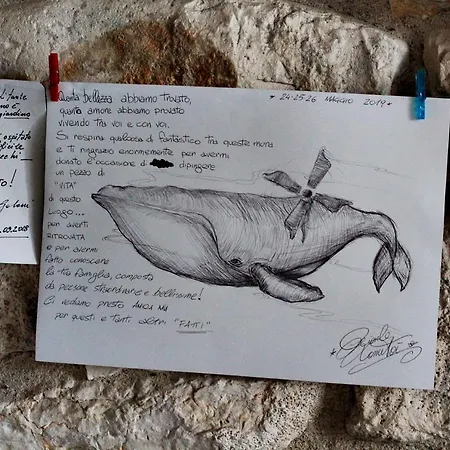 Quanta bellezza abbiamo trovato,
quanto amore abbiamo provato
vivendo tra voi e con voi.
Si respira qualcosa di fantastico tra queste mura
e ti ringrazio enormemente per avermi
donato l'occasione di dipingere
un pezzo di
"VITA"
di questo
luogo...
per averti
RITROVATA
e per avermi
fatto conoscere
la tua famiglia, composta
da persone straordinarie e bellissime!
Ci vediamo presto
per questi e tanti altri "FATTI"
* 24-25-26 MAGGIO 2019 *
ospitato
2018